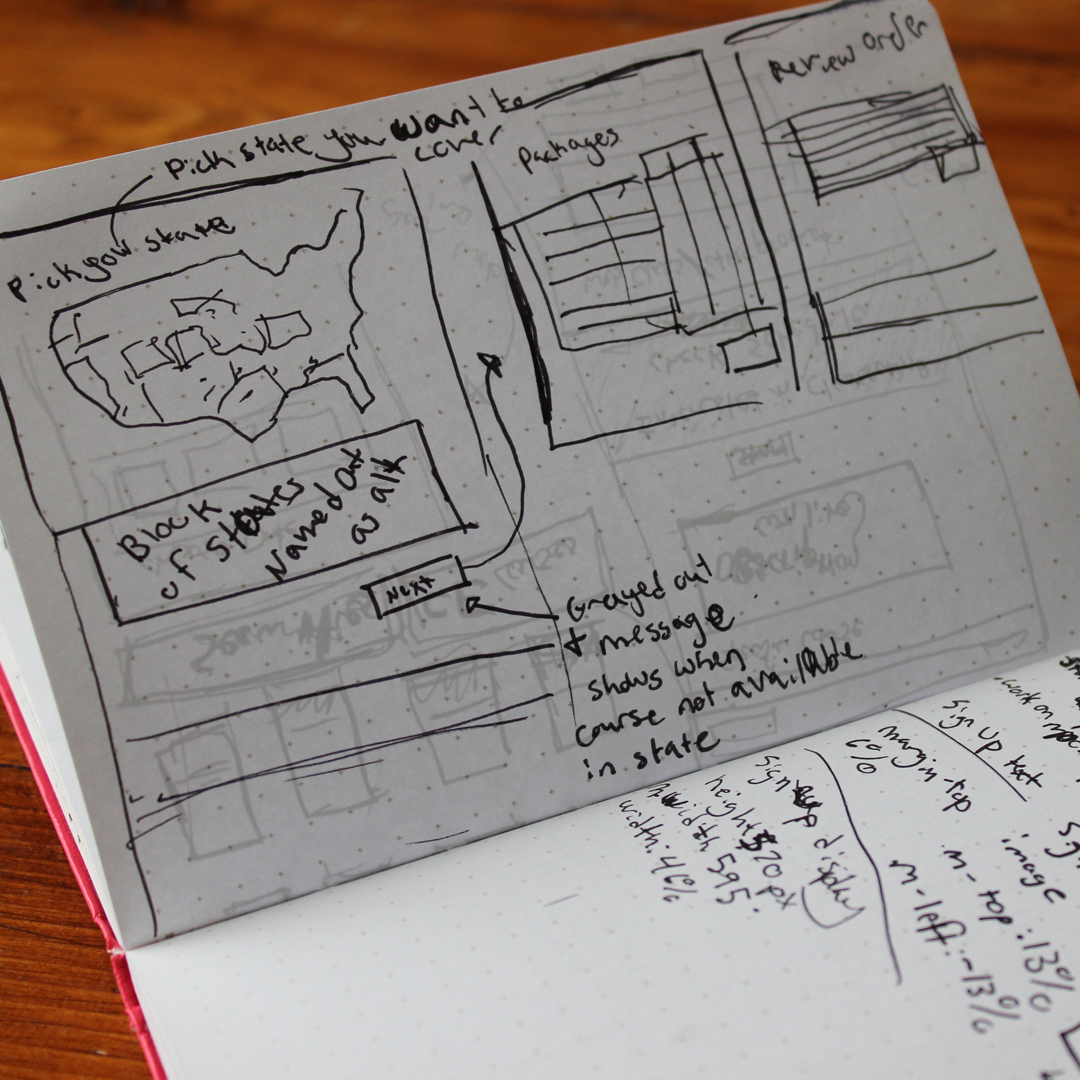 Pick state you want to
cover
Pick your state
Packages
Review Order
Block
of States
Named Out
as alt
Next
Grayed out
+ message
shows when
course not available
in state
sign up text
margin-top
6%
image
m-top: 13%
m-left: -13%
sign up display
height 520 px
width 595.
width: 46%